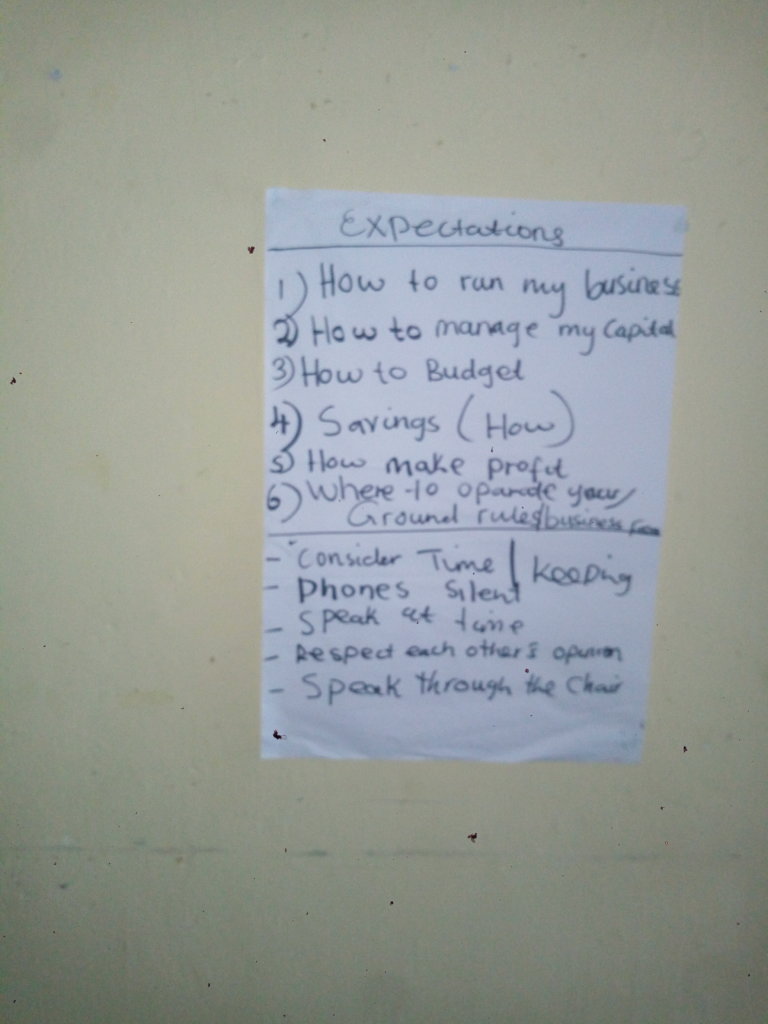 Expectations
1) How to run my business
2) How to manage my Capital
3) How to Budget
4) Savings (How)
5) How make profit
6) Where to oparate your
Ground rules/business from
- Consider Time / Keeping
- Phones Silent
- Speak at time
- Respect each other's opinion
- Speak through the Chair